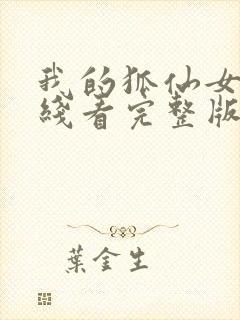 我的狐仙女
綫看完整版
葉金生